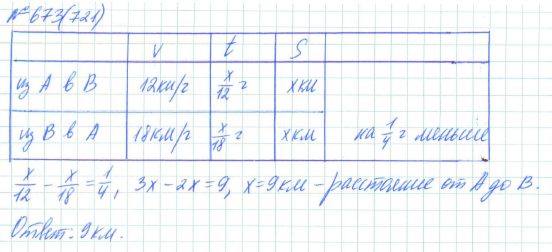 №673(721)
v t S
из A в B 12км/ч x/12 ч x км
из B в A 18км/ч x/18 ч x км на 1/4 ч меньше
x/12 - x/18 = 1/4, 3x - 2x = 9, x = 9 км - расстояние от A до B.
Ответ: 9 км.